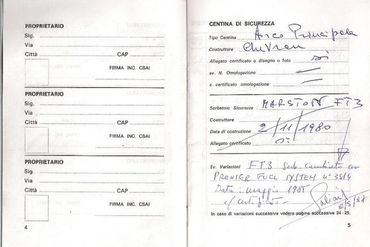 PROPRIETARIO
Sig.
Via
Città CAP
FIRMA INC. CSAI
PROPRIETARIO
Sig.
Via
Città CAP
FIRMA INC. CSAI
PROPRIETARIO
Sig.
Via
Città CAP
FIRMA INC. CSAI
4
CENTINA DI SICUREZZA
Tipo Centina Arco Principale
Costruttore Chevron
Allegato certificato o disegno o foto sì
ev. N. Omologazione
e certificato omologazione
Serbatoio Sicurezza MARSTON FT3
Costruttore
Data di costruzione 2/11/1980
Allegato certificato sì
Ev. Variazioni FT3 Serb. Cambiato con
PREMIER FUEL SYSTEM N°
Data: maggio 1985
In caso di variazioni successive vedere pagine successive 24 - 25.
5